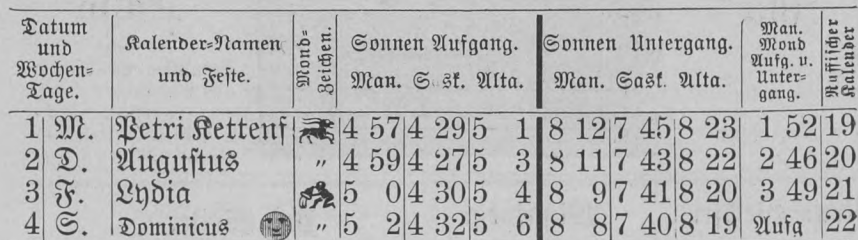 Datum und Wochen=Tage. Kalender=Namen und Feste. Mond=Zeichen. Sonnen Aufgang. Man. Sask. Alta. Sonnen Untergang. Man. Sask. Alta. Man. Mond Aufg. u. Unter=gang. Russischer Kalender
1 M. Petri Kettenf 4 57 4 29 5 1 8 12 7 45 8 23 1 52 19
2 D. Augustus " 4 59 4 27 5 3 8 11 7 43 8 22 2 46 20
3 F. Lydia 5 0 4 30 5 4 8 9 7 41 8 20 3 49 21
4 S. Dominicus " 5 2 4 32 5 6 8 8 7 40 8 19 Aufg 22